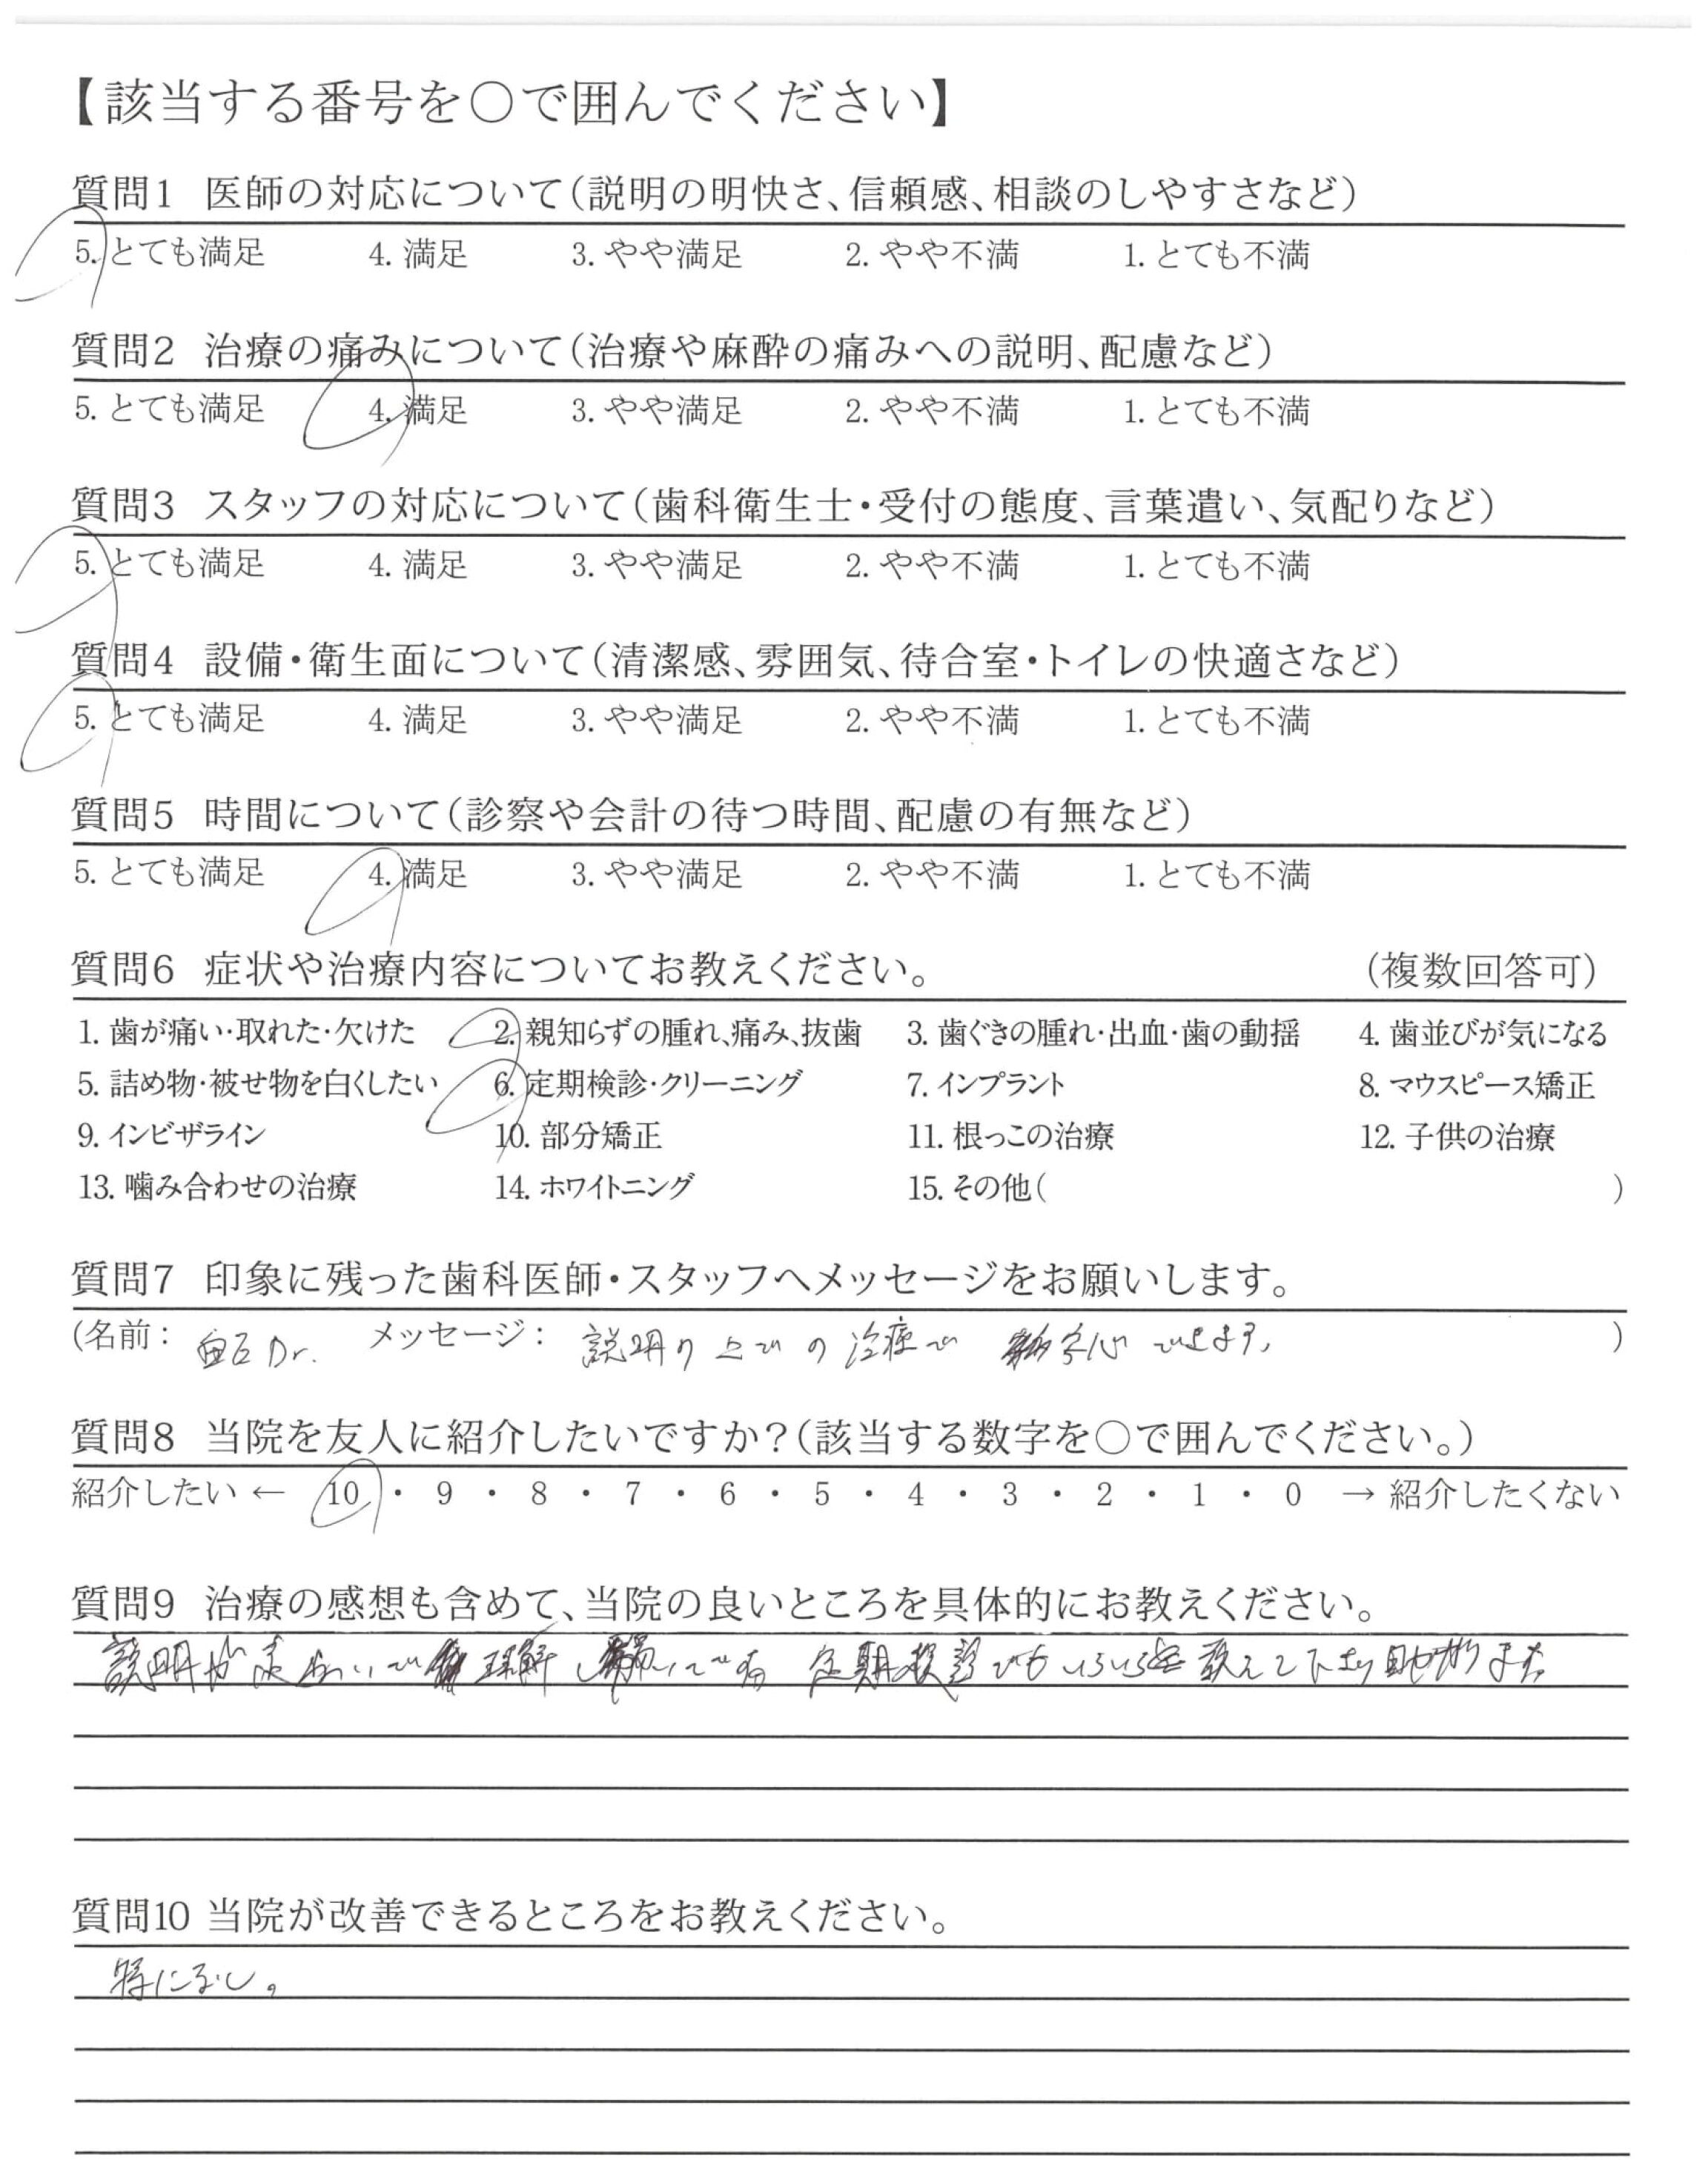 【該当する番号を○で囲んでください】
質問1 医師の対応について(説明の明快さ、信頼感、相談のしやすさなど)
5. とても満足 4. 満足 3. やや満足 2. やや不満 1. とても不満
質問2 治療の痛みについて(治療や麻酔の痛みへの説明、配慮など)
5. とても満足 4. 満足 3. やや満足 2. やや不満 1. とても不満
質問3 スタッフの対応について(歯科衛生士・受付の態度、言葉遣い、気配りなど)
5. とても満足 4. 満足 3. やや満足 2. やや不満 1. とても不満
質問4 設備・衛生面について(清潔感、雰囲気、待合室・トイレの快適さなど)
5. とても満足 4. 満足 3. やや満足 2. やや不満 1. とても不満
質問5 時間について(診察や会計の待つ時間、配慮の有無など)
5. とても満足 4. 満足 3. やや満足 2. やや不満 1. とても不満
質問6 症状や治療内容についてお教えください。 (複数回答可)
1. 歯が痛い・取れた・欠けた 2. 親知らずの腫れ、痛み、抜歯 3. 歯ぐきの腫れ・出血・歯の動揺 4. 歯並びが気になる
5. 詰め物・被せ物を白くしたい 6. 定期検診・クリーニング 7. インプラント 8. マウスピース矯正
9. インビザライン 10. 部分矯正 11. 根っこの治療 12. 子供の治療
13. 噛み合わせの治療 14. ホワイトニング 15. その他( )
質問7 印象に残った歯科医師・スタッフへメッセージをお願いします。
(名前: Dr. メッセージ: 説明の上での治療で 安心できます。 )
質問8 当院を友人に紹介したいですか?(該当する数字を○で囲んでください。)
紹介したい ← 10 ・ 9 ・ 8 ・ 7 ・ 6 ・ 5 ・ 4 ・ 3 ・ 2 ・ 1 ・ 0 → 紹介したくない
質問9 治療の感想も含めて、当院の良いところを具体的にお教えください。
説明が 理解し 定期検診でもいろいろと教えて下さり助かります
質問10 当院が改善できるところをお教えください。
特になし。